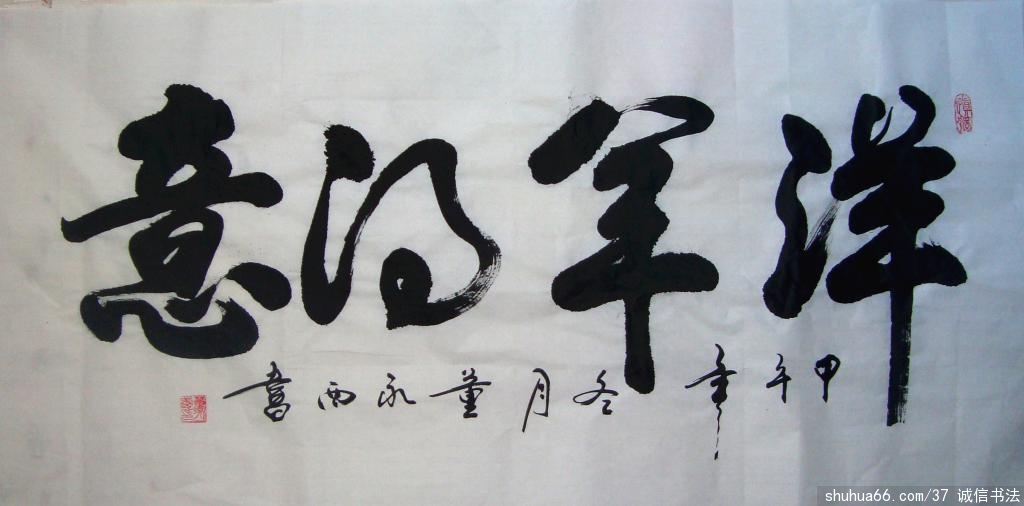 洋羊得意
甲午年冬月董永西書
shuhua66.com/37 诚信书法